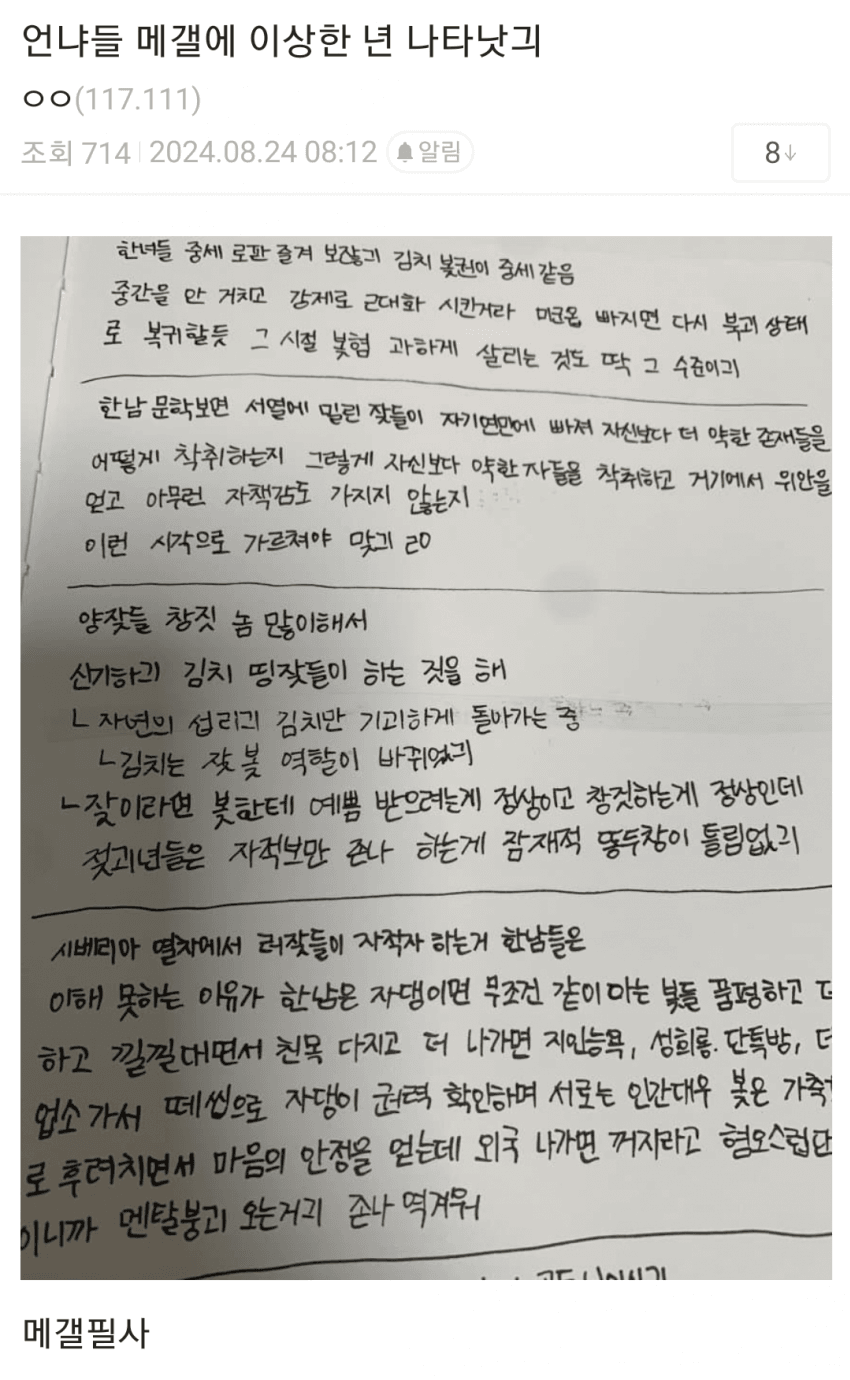 언냐들 메갤에 이상한 년 나타낫긔
ㅇㅇ(117.111)
조회 714 2024.08.24 08:12 알림
8↓
한녀들 중세 로판 즐겨 보잖긔 김치 봊권이 중세같음
중간을 안 거치고 강제로 근대화 시킨거라 미코온 빠지면 다시 북괴 상태
로 복귀할듯 그 시절 봊혐 과하게 살리는 것도 딱 그 수준이긔
한남문학보면 서열에 밀린 잦들이 자기연민에 빠져 자신보다 더 약한 존재들을
어떻게 착취하는지 그렇게 자신보다 약한자들을 착취하고 거기에서 위안을
얻고 아무런 자책감도 가지지 않는지
이런 시각으로 가르쳐야 맞긔 ㄹㅇ
양잦들 창짓 놈 많이해서
신기하긔 김치 띵잦들이 하는 것을 해
ㄴ 자연의 섭리긔 김치만 기괴하게 돌아가는 중
ㄴ김치는 잦 봊 역할이 바뀌었긔
ㄴ잦이라면 봊한테 예쁨 받으려는게 정상이고 창짓하는게 정상인데
젖괴년들은 자적보만 존나 하는게 잠재적 똥두창이 틀림없긔
시베리아 열차에서 러잦들이 자적자 하는거 한남들은
이해 못하는 이유가 한남은 자댕이면 무조건 같이 마는 봊들 품평하고
하고 낄낄대면서 친목 다지고 더 나가면 지인능욕, 성희롱. 단톡방,
업소 가서 떼씹으로 자댕이 권력 확인하며 서로는 인간대우 봊은 가축
로 후려치면서 마음의 안정을 얻는데 외국 나가면 꺼지라고 혐오스럽단
이니까 멘탈붕괴 오는거긔 존나 역겨워
메갤필사